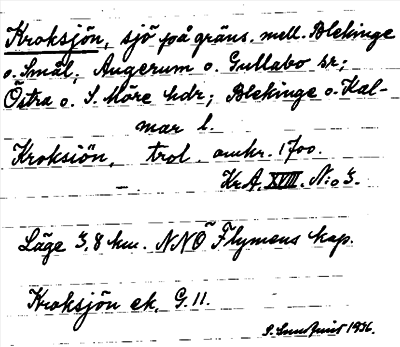 Kroksjön, sjö på gräns. mell. Blekinge
o. Smål; Augerum o. Gullabo sr;
Östra o. S. Möre hdr; Blekinge o. Kal-
mar l.
Kroksiön, trol. omkr. 1700.
Kr.A. XVIII. N:o 3.
Läge 3,8 km. NNÖ Flymens kap.
Kroksjön ek. G. 11.
S. Lundqvist 1936.